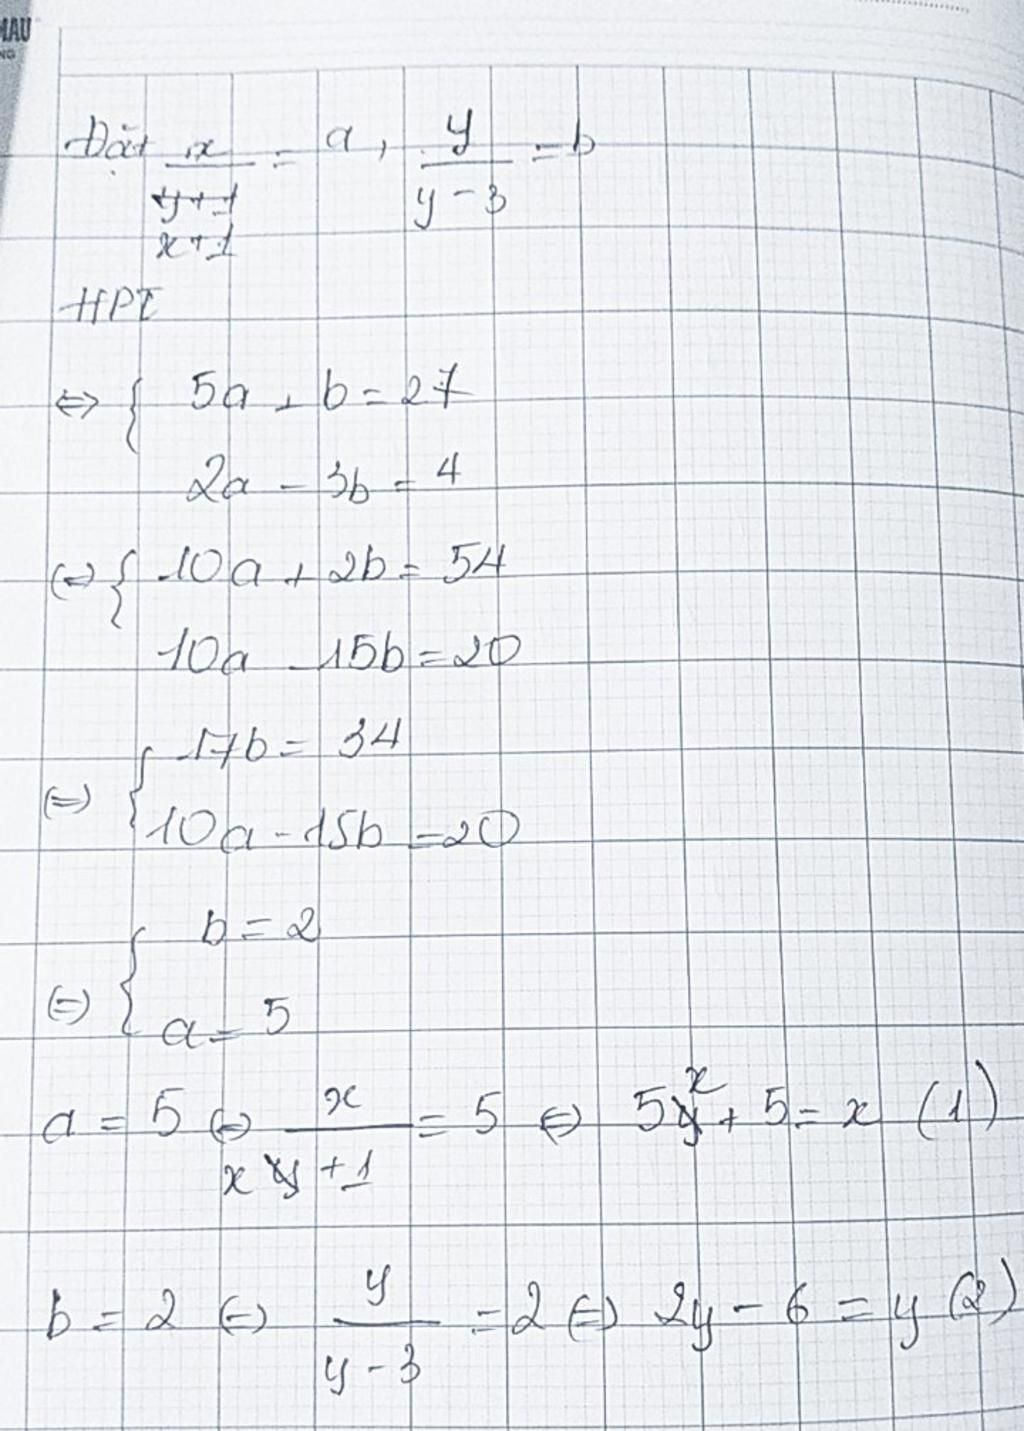 MAU
NG
Đặt x/(x+1) = a, y/(y-3) = b
HPT
⇔ { 5a + b = 27
2a - 3b = 4
⇔ { 10a + 2b = 54
10a - 15b = 20
⇔ { 17b = 34
10a - 15b = 20
⇔ { b = 2
a = 5
a = 5 ⇔ x/(x+1) = 5 ⇔ 5x + 5 = x (1)
b = 2 ⇔ y/(y-3) = 2 ⇔ 2y - 6 = y (2)